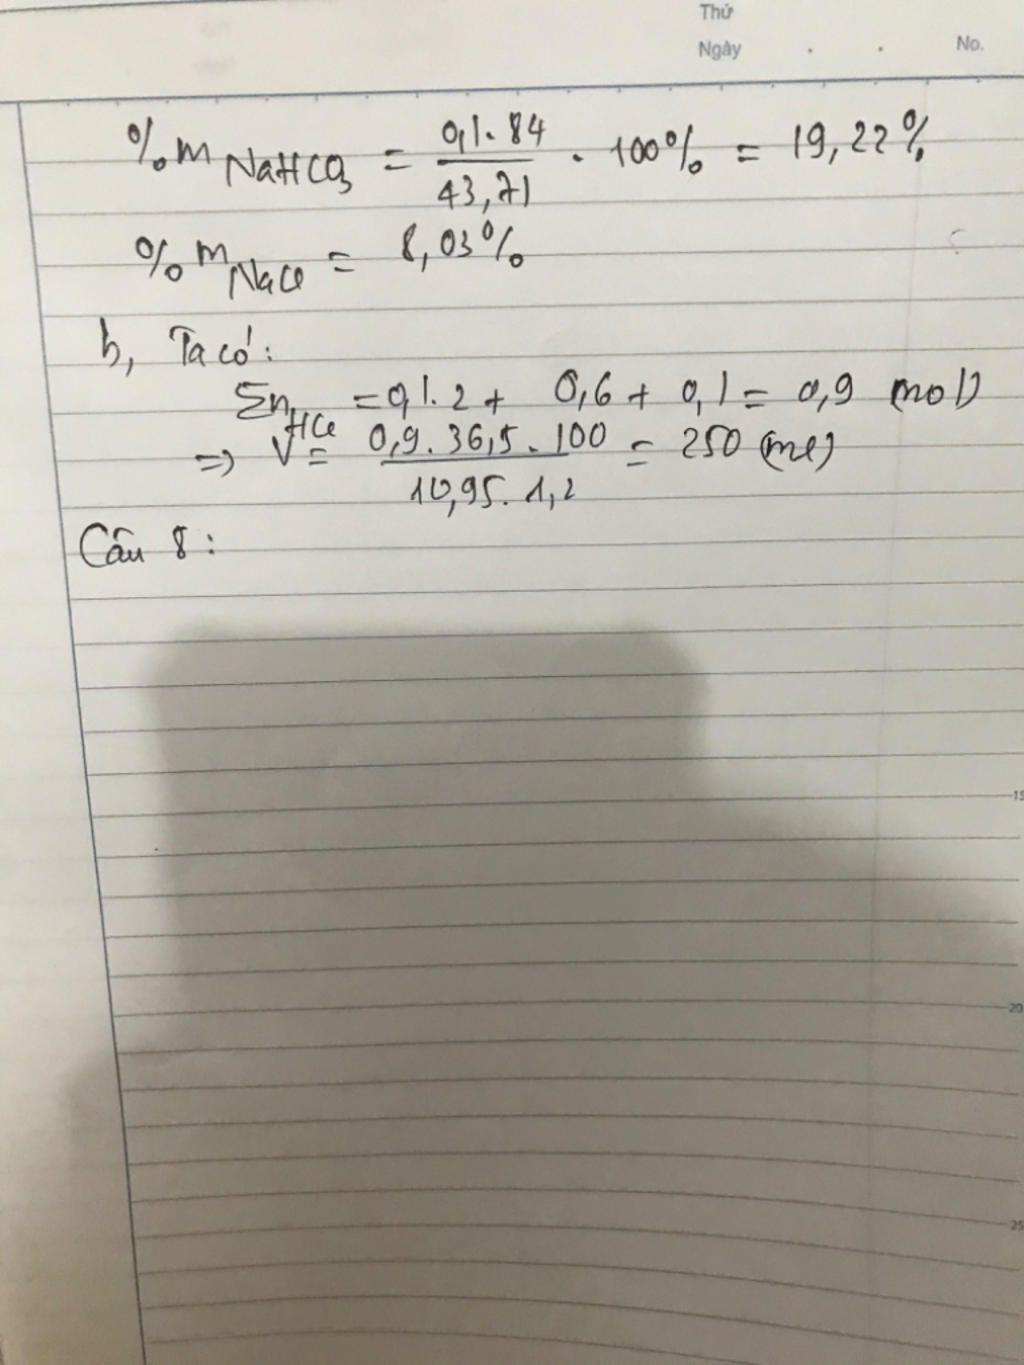 Thứ
Ngày . . No.
%m NaHCO3 = 0,1.84 / 43,71 . 100% = 19,22%
%m NaCl = 8,03%
b, Ta có:
Σn HCl = 0,1.2 + 0,6 + 0,1 = 0,9 (mol)
=> V = 0,9.36,5.100 / 10,95.1,2 = 250 (ml)
Câu 8:
15
20
25